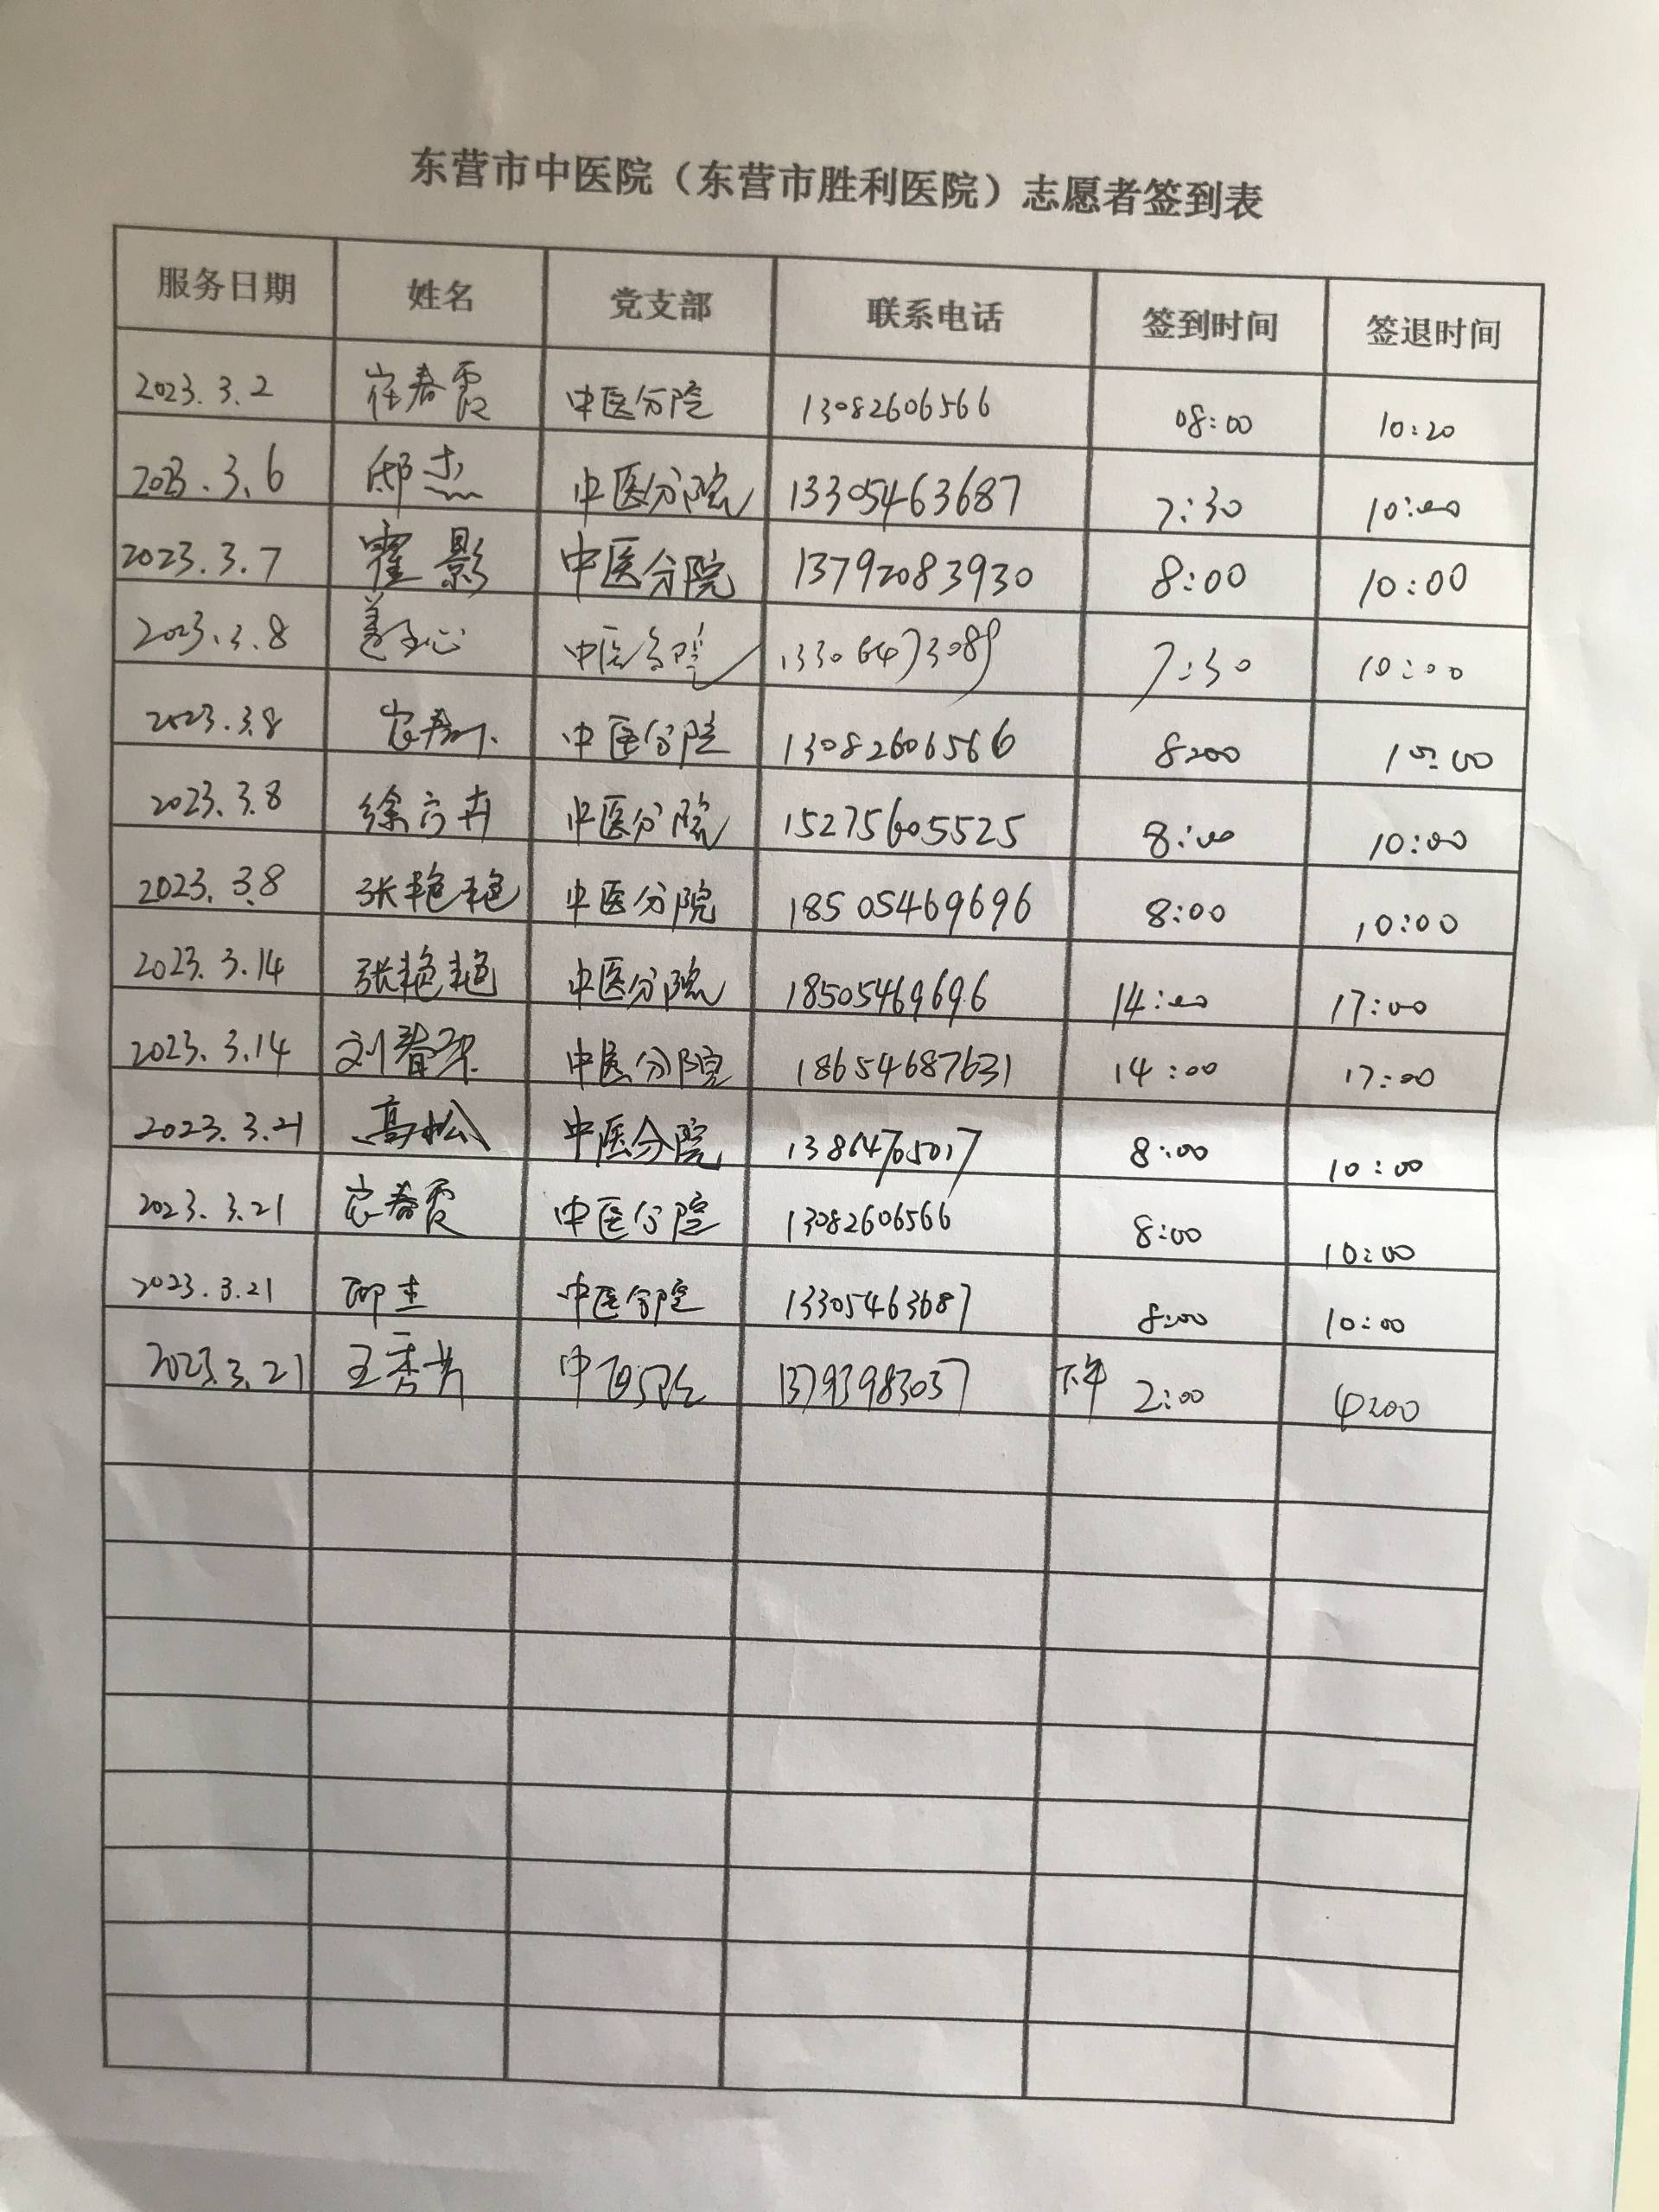 东营市中医院（东营市胜利医院）志愿者签到表
服务日期 姓名 党支部 联系电话 签到时间 签退时间
2023.3.2 春霞 中医分院 13082606566 08:00 10:20
2023.3.6 邸杰 中医分院 13305463687 7:30 10:00
2023.3.7 霍影 中医分院 13792083930 8:00 10:00
2023.3.8 中医分院 7:30 10:00
2023.3.8 中医分院 13082606566 8:00 10:00
2023.3.8 徐卉 中医分院 15275605525 8:00 10:00
2023.3.8 张艳艳 中医分院 18505469696 8:00 10:00
2023.3.14 张艳艳 中医分院 18505469696 14:00 17:00
2023.3.14 刘春 中医分院 18654687631 14:00 17:00
2023.3.21 高松 中医分院 13864705017 8:00 10:00
2023.3.21 春霞 中医分院 13082606566 8:00 10:00
2023.3.21 邸杰 中医分院 13305463687 8:00 10:00
2023.3.21 王秀芳 中医分院 13793983037 下午 2:00 4:00